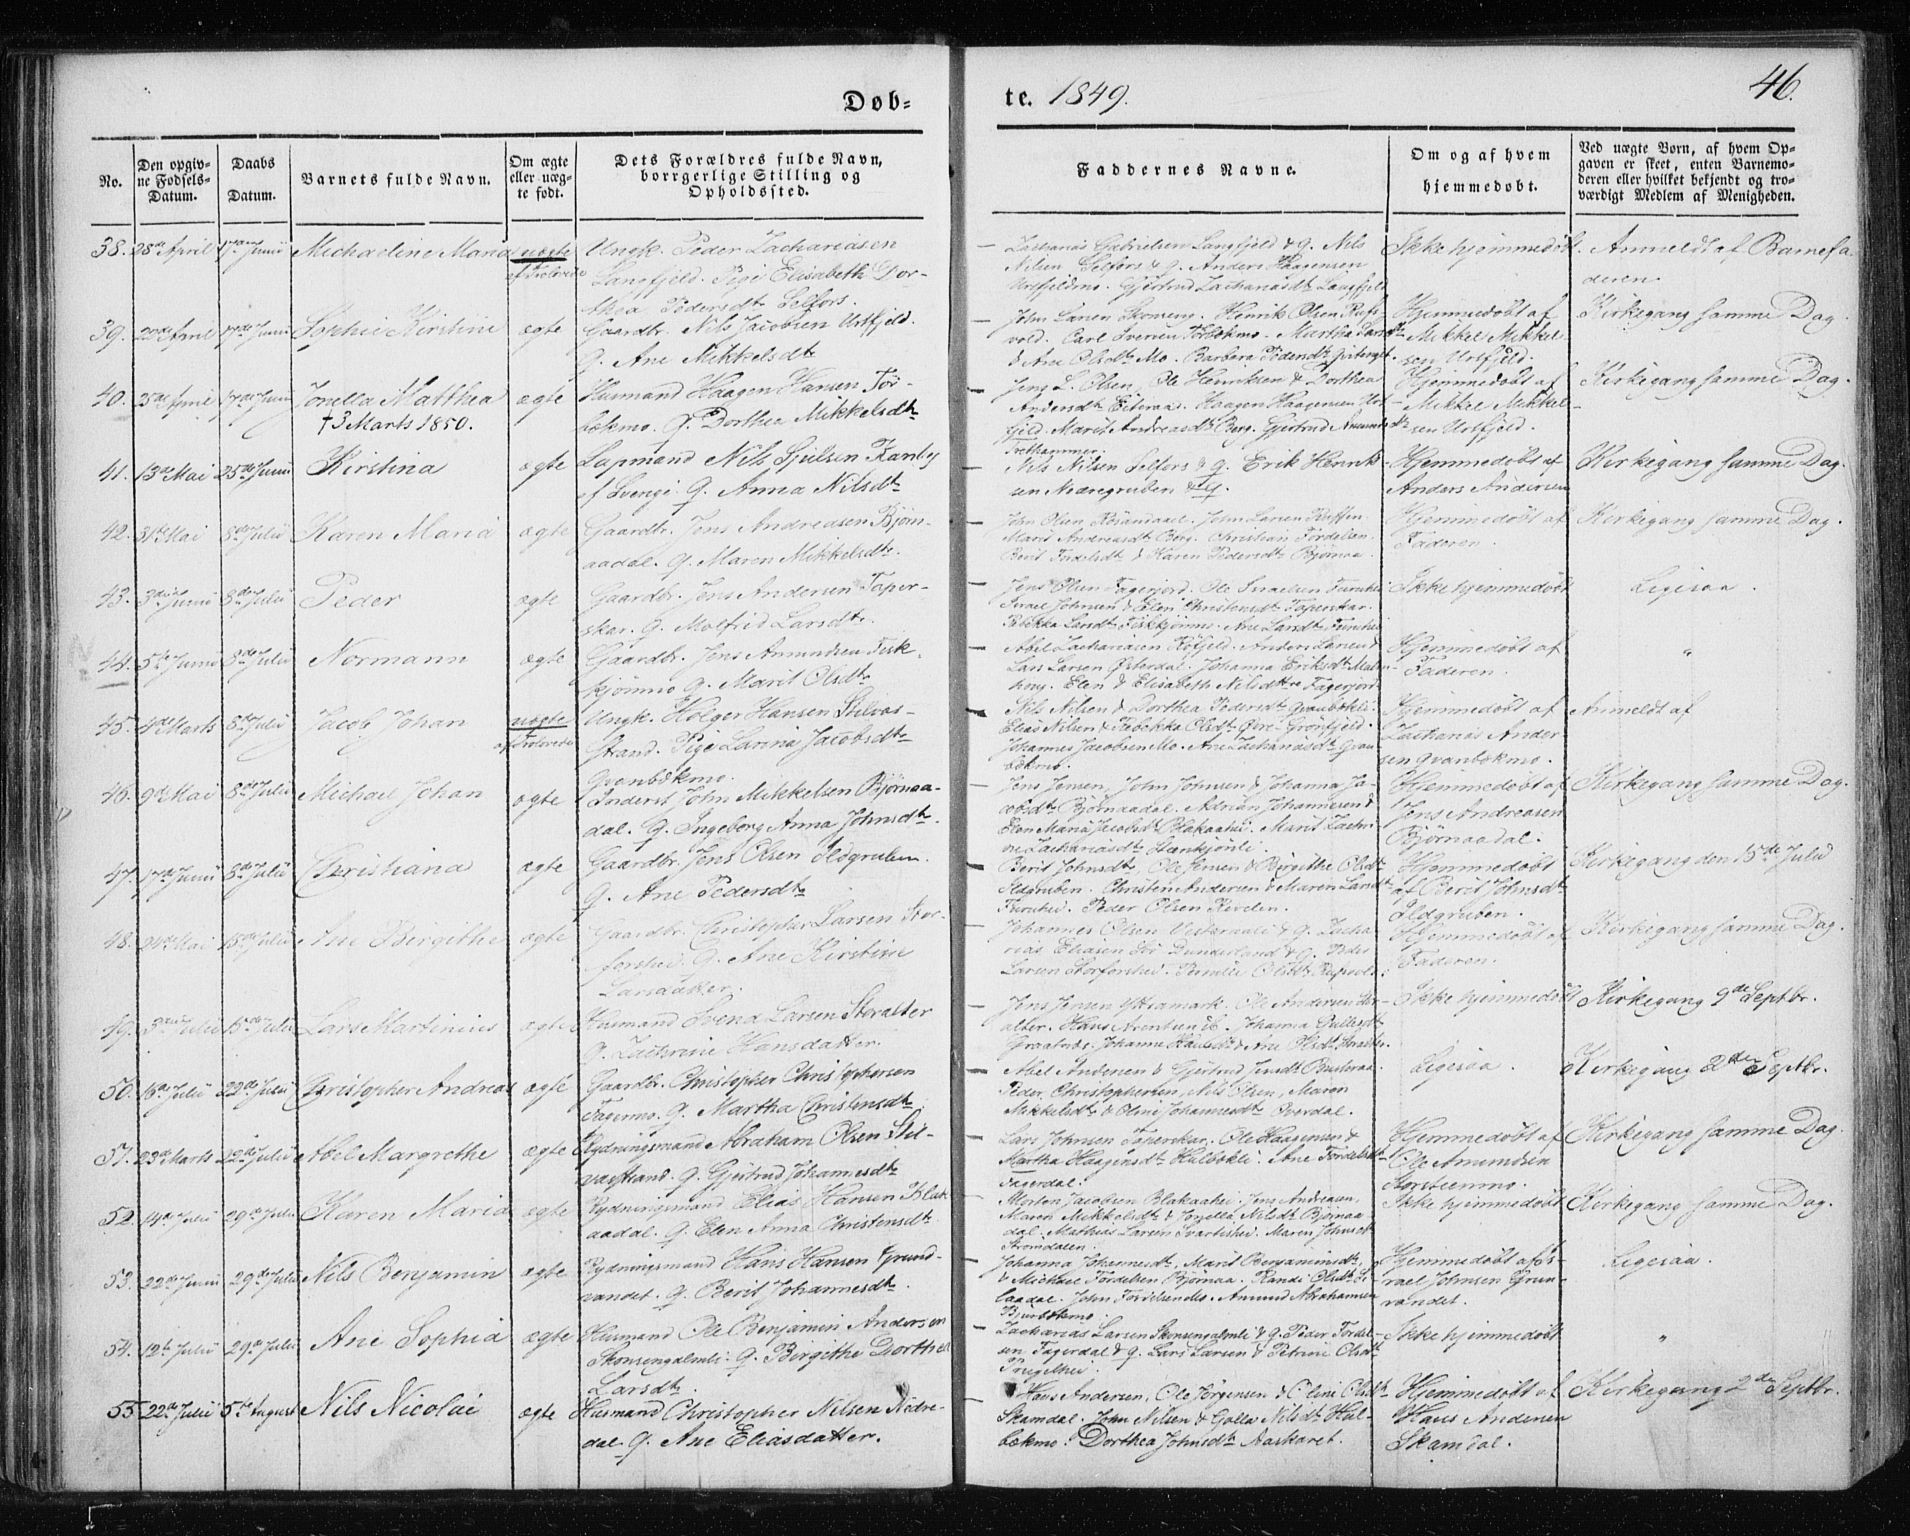 Døb=
te. 1849.
46.
No.
Den opgiv=
ne Fødsels-
Datum.
Daabs
Datum.
Barnets fulde Navn.
Om ægte
eller uæg-
te født.
Dets Forældres fulde Navn,
borrgerlige Stilling og
Opholdssted.
Faddernes Navne.
Om og af hvem
hjemmedøbt.
Ved uægte Børn, af hvem Op-
gaven er skeet, enten Barnemo-
deren eller hvilket bekjendt og tro-
værdigt Medlem af Menigheden.
38. 28de April 17de Junii Michaeline Maria uægte Ungk. Peder Zachariasen
af Trolovede Langfjeld. Pige Elisabeth Dor-
thea Pedersdtr Selfors.
Zacharias Gabrielsen Langfjeld & Q. Nils
Nilsen Selfors & Q. Anders Haagensen
Urtfjeldmo. Gjertrud Zachariasdtr Langfjeld
Ikke hjemmedøbt. Anmeldt af Barnefa
deren
39. 22de April 17de Junii Sophie Kirstine ægte Gaardbr. Nils Jacobsen Urtfjeld.
Q. Ane Mikkelsdtr
John Larsen Skonseng. Henrik Olsen Rufs-
vold. Carl Iversen. Martha Larsdtr
& Ane Olsdtr Mo. Barbera Pedersdtr
Hjemmedøbt af
Mikkel Mikkel-
sen Urtfjeld.
Kirkegang samme Dag.
40. 23de April 17de Junii Jonella Matthea ægte Husmand Haagen Hansen Tør-
† 3 Marts 1850. bekmo. Q. Dorthea Mikkelsdtr
Jens L. Olsen, Ole Henriksen & Dorthea
Andersdtr Eiteraa. Haagen Haagensen Urt
fjeld. Marit Andreasdtr Berg. Gjertrud
Hjemmedøbt af
Mikkel Mikkel-
sen Urtfjeld.
Kirkegang samme Dag.
41. 13de Mai 25de Junii Kirstina ægte Lapmand Nils Sjulsen
af Svensi Q. Anna Nilsdtr
Nils Nilsen Selfors & Q. Erik Henrik-
sen Nedregruben & Q.
Hjemmedøbt af
Anders Andersen
Kirkegang samme Dag.
42. 31te Mai 8de Julii Karen Maria ægte Gaardbr. Jens Andreasen Bjørn-
aadal. Q. Maren Mikkelsdtr.
John Olsen. John Larsen
Marit Andreasdtr Berg. Christian Tordelsen
Berit Tordelsdtr & Karen Pedersdtr Bjørnaa.
Hjemmedøbt af
Faderen.
Kirkegang samme Dag.
43. 3die Junii 8de Julii Peder ægte Gaardbr. Jens Andersen Taper-
skar. Q. Molfrid Larsdtr.
Jens Olsen Fagerjord. Ole Israelsen Furuhei
Israel Johnsen & Elen Christensdtr Taperskar.
Rebekka Larsdtr Fiskkjønmo. Ane Larsdtr Furuhei
Ikke hjemmedøbt Ligesaa.
44. 5te Junii 8de Julii Normann ægte Gaardbr. Jens Amundsen Fisk-
kjønmo Q. Marit Olsdtr
Abel Zachariasen Røfjeld. Anders Larsen &
Lars Larsen Østerdal. Johanna Eriksdtr
Elen & Elisabeth Nilsdttre Fagerjord
Hjemmedøbt af
Faderen.
"
45. 4de Marts 8de Julii Jacob Johan uægte Ungk. Holger Hansen Stilvas-
af Trolovede Strand. Pige Larina Jacobsdtr
Gvanbekmo.
Nils Nilsen & Dorthea Pedersdtr Gvanbekli.
Elias Nilsen & Rebekka Olsdtr Øvre-Grønfjeld.
Johannes Jacobsen Mo. Ane Zachariasdtr Gvan
bekmo.
Hjemmedøbt af
Zacharias Ander
sen Gvanbekmo.
Anmeldt af
46. 9de Mai 8de Julii Michael Johan ægte Inderst John Mikkelsen Bjørnaa-
dal. Q. Ingeborg Anna Johnsdtr.
Jens Jensen, John Johnsen & Johanna Ja-
cobsdtr Bjørnaadal. Adrian Johannesen &
Elen Maria Jacobsdtr Blakaahei. Marit Zachri
Zachariasdtr
Hjemmedøbt af
Jens Andreasen
Bjørnaadal.
Kirkegang samme Dag.
47. 17de Junii 8de Julii Christiana ægte Gaardbr. Jens Olsen Ildgruben.
Q. Ane Pedersdtr
Berit Johnsdtr, Ole Jensen & Birgithe Olsdtr
Ildgruben. Christen Andersen & Maren Larsdtr
Furuhei. Peder Olsen Revelen.
Hjemmedøbt
af Berit Johnsdtr
Ildgruben.
Kirkegang den 15de Julii
48. 24de Mai 15de Julii Ane Birgithe ægte Gaardbr. Christopher Larsen Stor-
forshei. Q. Ane Kirstine
Larsdatter.
Johannes Olsen Vesteraali & Q. Zacha
rias Eliasen Dunderland & Q. Peder
Larsen Storforshei.
Hjemmedøbt af
Faderen.
Kirkegang samme Dag.
49. 3die Julii 15de Julii Lars Martinius ægte Husmand Svend Larsen Storalter
Q. Zachrine Hansdatter.
Jens Jensen Yttramark. Ole Andersen Stor-
alter. Hans Arentsen ib. Johanna
Graatnæs. Johanne Hansdtr & Ane Olsdtr
Ikke hjemmedøbt Kirkegang 9de Septbr.
50. 16de Julii 22de Julii Christopher Andreas ægte Gaardbr. Christopher Christophersen
Fagermo. Q. Martha Christensdtr.
Abel Andersen & Gjertrud Jensdtr
Peder Christophersen, Nils Olsen, Maren
Mikkelsdtr & Oline Johannesdtr Overdal.
Ligesaa. Kirkegang 2den Septbr.
51. 23de Marts 22de Julii Abel Margrethe ægte Rydningsmand Abraham Olsen Stil-
vasstrand. Q. Gjertrud Johannesdtr
Lars Johnsen Taperskar. Ole Haagensen &
Martha Haagensdtr Hulbekli. Ane Tordelsdtr
Fagerdal.
Hjemmedøbt af
Ole Amundsen
Storsteenmo.
Kirkegang samme Dag
52. 14de Julii 29de Julii Karen Maria ægte Rydningsmand Elias Hansen Blak
aadal. Q. Elen Anna Christensdtr
Morten Jacobsen Blakaahei. Jens Andreasen,
Maren Mikkelsdtr & Jonella Nilsdtr Bjørnaa
dal. Mathias Larsen Svartishei. Maren Johnsdtr
Stormdalen.
Ikke hjemmedøbt Kirkegang samme Dag.
53. 22de Junii 29de Julii Nils Benjamin ægte Rydningsmand Hans Hansen Grund-
vandet. Q. Berit Johannesdtr.
Johanna Johannesdtr, Marit Benjaminsdtr,
& Mikkel Tordelsen Bjørnaa. Randi Olsdtr
laadal. John Tordelsen ds. Amund Abrahamsen
Bjurbekmo.
Hjemmedøbt af Is-
rael Johnsen Grun
vandet.
Ligesaa.
54. 12te Julii 29de Julii Ane Sophia ægte Husmand Ole Benjamin Andersen
Skonsengalmli. Q. Birgithe Dorthea
Larsdtr.
Zacharias Larsen Skonsengalmli & Q. Peder Tordel-
sen Fagerdal & Q. Lars Larsen & Petrine Olsdtr
Prægelhei.
Ikke hjemmedøbt "
55. 22de Julii 5te August Nils Nicolai ægte Husmand Christopher Nilsen Nedre-
dal. Q. Ane Eliasdatter.
Hans Andersen, Ole Jørgensen & Oline Olsdtr
Skamdal. John Nilsen & Golla Nilsdtr Hul-
bekmo. Dorthea Johnsdtr Aaskaret.
Hjemmedøbt af
Hans Andersen
Skamdal.
Kirkegang 2den Septbr.